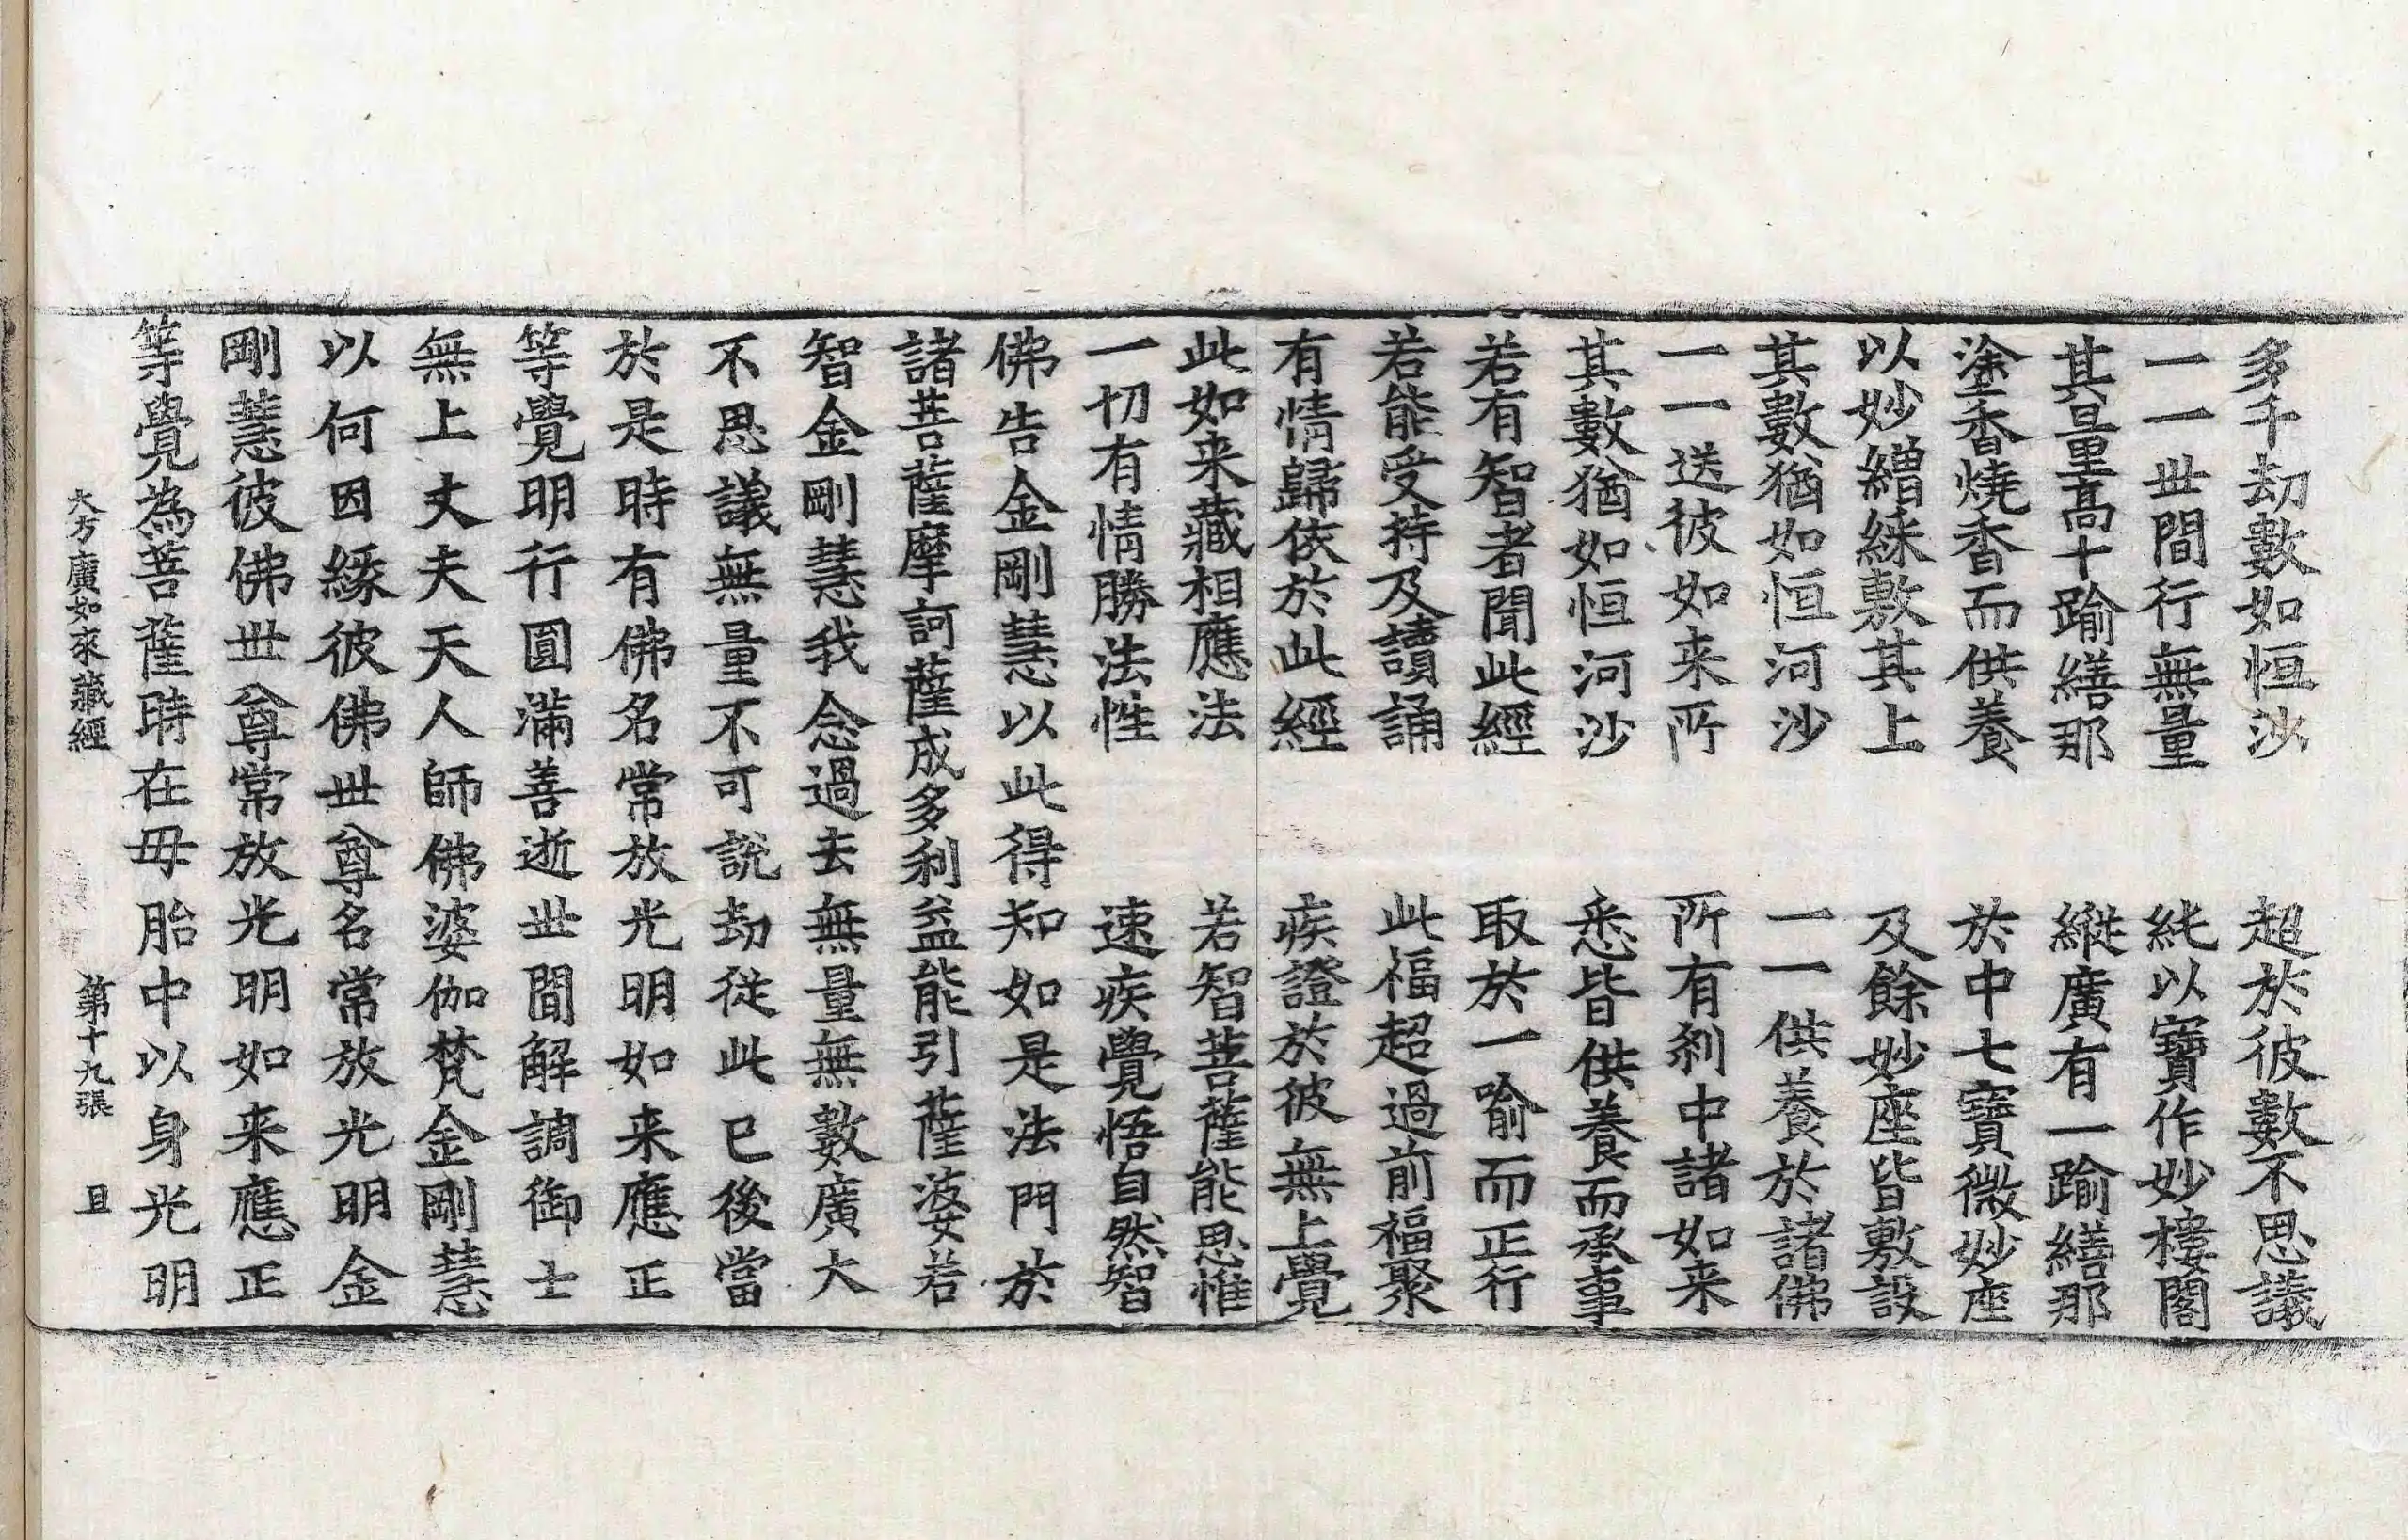 多千劫數如恒沙　超於彼數不思議
一一世間行無量　純以寶作妙樓閣
其量高十踰繕那　縱廣有一踰繕那
塗香燒香而供養　於中七寶微妙座
以妙繒綵敷其上　及餘妙座皆敷設
其數猶如恒河沙　一一供養於諸佛
一一送彼如来所　所有刹中諸如来
其數猶如恒河沙　悉皆供養而承事
若有智者聞此經　取於一喻而正行
若能受持及讀誦　此福超過前福聚
有情歸依於此經　疾證於彼無上覺
此如来藏相應法　若智菩薩能思惟
一切有情勝法性　速疾覺悟自然智
佛告金剛慧以此得知如是法門於
諸菩薩摩訶薩成多利益能引薩婆若
智金剛慧我念過去無量無數廣大
不思議無量不可說劫從此已後當
於是時有佛名常放光明如来應正
等覺明行圓滿善逝世間解調御士
無上丈夫天人師佛婆伽梵金剛慧
以何因緣彼佛世尊名常放光明金
剛慧彼佛世尊常放光明如来應正
等覺為菩薩時在母胎中以身光明
大方廣如來藏經　第十九張　且